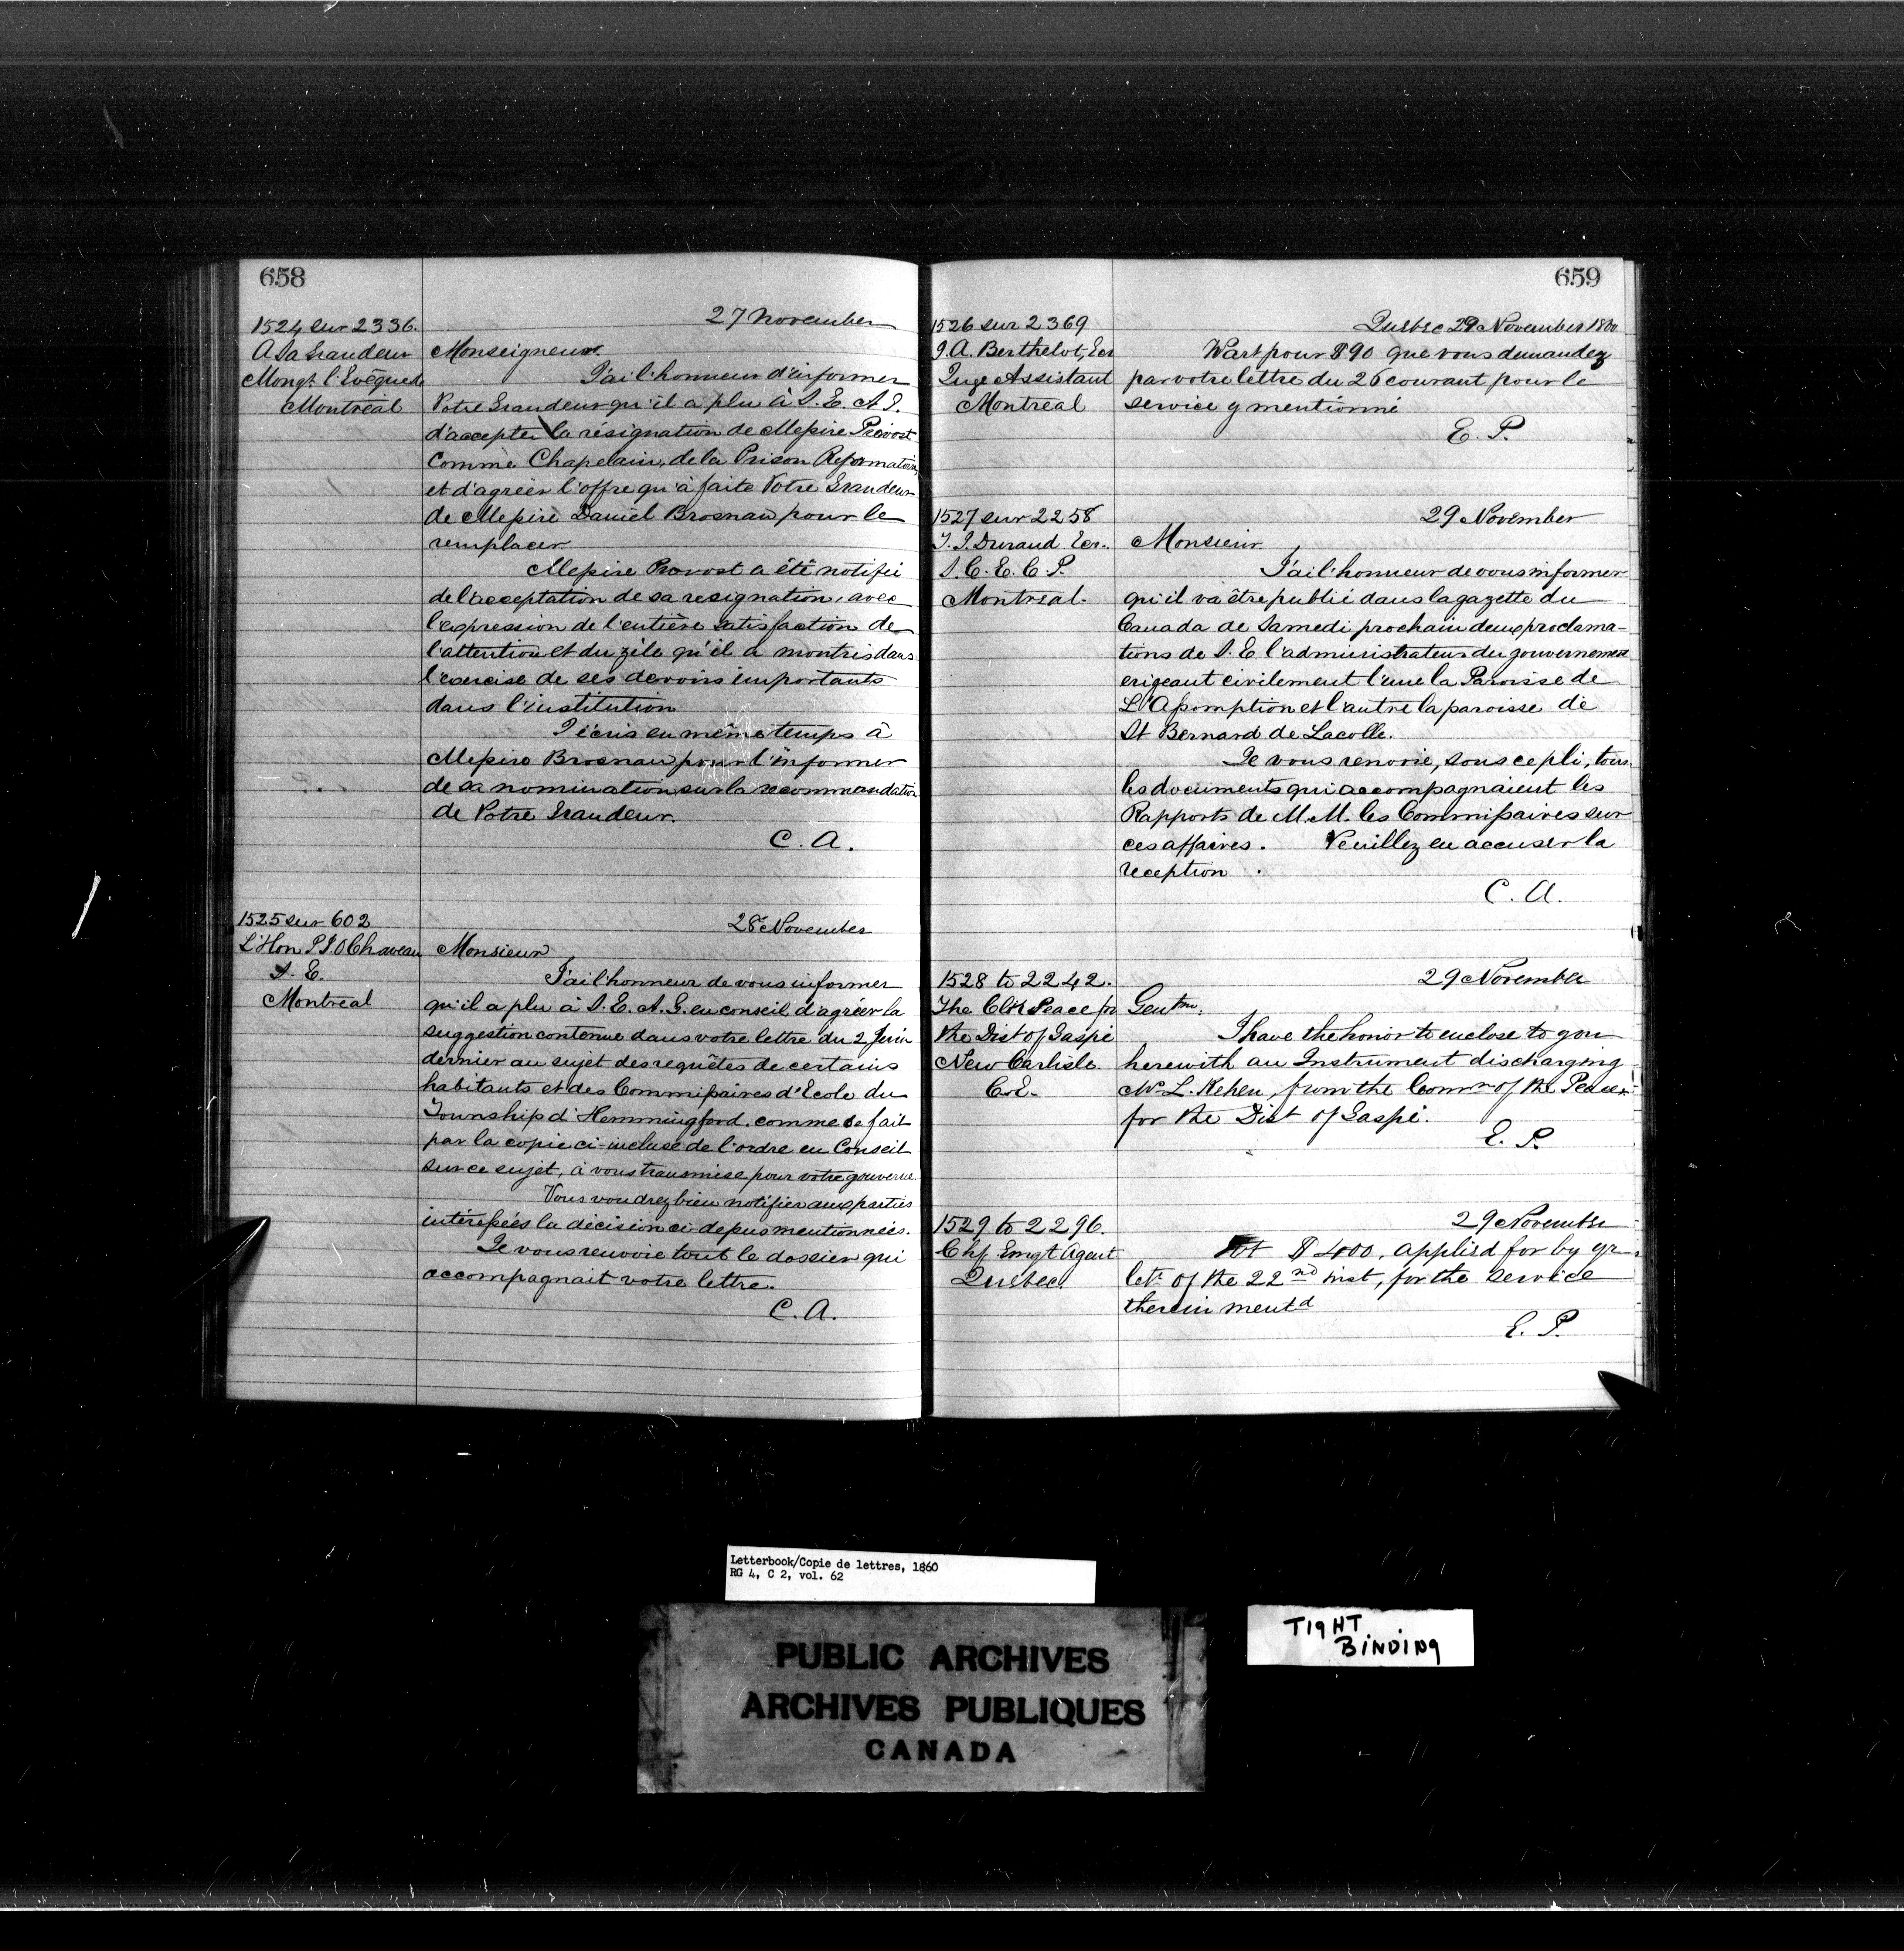 658
27 November
1524 sur 2336.
A Sa Grandeur
Mongr. l'Evêque de
Montréal
Monseigneur.
J'ai l'honneur d'informer
Votre Grandeur qu'il a plu à S. E. A. G.
d'accepter la résignation de Messire Provost
comme Chapelain, de la Prison Reformatoire,
et d'agréer l'offre qu'à faite Votre Grandeur
de Messire Daniel Brosnan pour le
remplacer
Messire Provost a été notifié
de l'acceptation de sa resignation, avec
l'expression de l'entière satisfaction de
l'attention et du zèle qu'il a montrés dans
l'exercise de ses devoirs importants
dans l'institution
J'écris en même temps à
Messire Brosnan pour l'informer
de sa nomination sur la recommandation
de Votre Grandeur.
C. A.
1525 sur 602
L'Hon P J O Chaveau
S. E.
Montreal
28 November
Monsieur
J'ai l'honneur de vous informer
qu'il a plu à S. E. A. G. en conseil d'agréer la
suggestion contenue dans votre lettre du 2 Juin
dernier au sujet des requêtes de certains
habitants et des Commissaires d'Ecole du
Township d'Hemmingford. comme se fait
par la copie ci-incluse de l'ordre en Conseil
sur ce sujet, à vous transmise pour votre gouverne.
Vous voudrez bien notifier aux parties
intéressées la décision ci-dessus mentionnées.
Je vous renvoie tout le dossier qui
accompagnait votre lettre.
C. A.
659
1526 sur 2369
J. A. Berthelot, Ecr
Juge Assistant
Montreal
Quebec 29 November 1860
Wart pour $90 que vous demandez
par votre lettre du 26 courant pour le
service y mentionné
E. P.
1527 sur 2258
J. J. Durand Ecr.
S. C. E. C. P.
Montreal.
29 November
Monsieur
J'ai l'honneur de vous informer
qu'il va être publié dans la gazette du
Canada de Samedi prochain deux proclama-
tions de S. E l'administrateur du gouvernement
erigeant civilement l'une la Paroisse de
L'Assomption et l'autre la paroisse de
St Bernard de Lacolle.
Je vous renvoie, sous ce pli, tous
les documents qui accompagnaient les
Rapports de M. M. les Commissaires sur
ces affaires. Veuillez en accuser la
reception.
C. A.
1528 to 2242.
The Clk Peace for
the Dist of Gaspé
New Carlisle.
C. E.
29 November
Gentm.
I have the honor to enclose to you
herewith an Instrument discharging
Mr L. Kehen, from the Comn of the Peace
for the Dist of Gaspé.
E. P.
1529 to 2296.
Chf Emgt Agent
Quebec.
29 November
$400, applied for by yr
letr of the 22nd inst, for the service
therein mentd
E. P.
Letterbook/Copie de lettres, 1860
RG 4, C 2, vol. 62
PUBLIC ARCHIVES
ARCHIVES PUBLIQUES
CANADA
TIGHT
BINDING